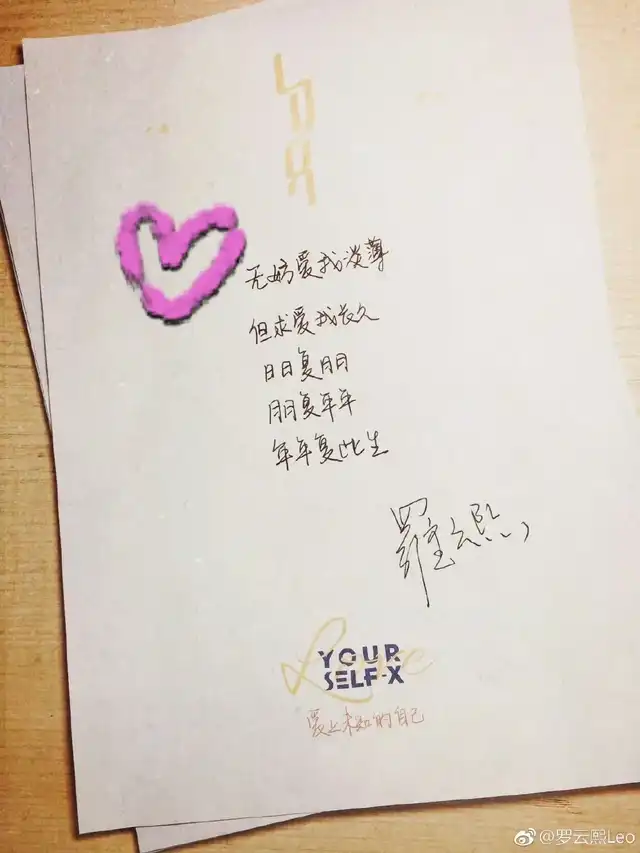 无妨爱我淡薄
但求爱我长久
日日复月月
月月复年年
年年复此生
羅云熙
Love
YOUR
SELF-X
爱上未知的自己
@罗云熙Leo